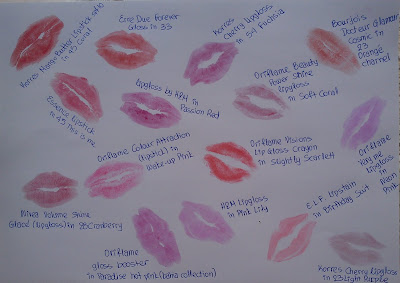 Korres Mango Butter Lipstick
in 43 Coral
Erre Due Forever
Gloss in 33
Korres
Cherry Lipgloss
in 54 Fuchsia
Bourjois
Docteur Glamour
Cosmic in
23
Orange
channel
Essence Lipstick
in 49 This is me
Lipgloss by H&M in
Passion Red
Oriflame Beauty
Power Shine
Lipgloss
in Soft Coral
Oriflame Colour Attraction
(lipstick) in
Wake-up Pink
Oriflame Visions
Lip Gloss Crayon
in Slightly Scarlett
Oriflame
Very Me
Lipgloss
in
Neon
Pink
Volume Shine
(lipgloss) in 98 Cranberry
Oriflame
gloss booster
in Paradise hot pink
H&M Lipgloss
in Pink Lily
E.L.F. Lipstain
in Birthday Suit
Korres Cherry Lipgloss
in 23 Light Purple